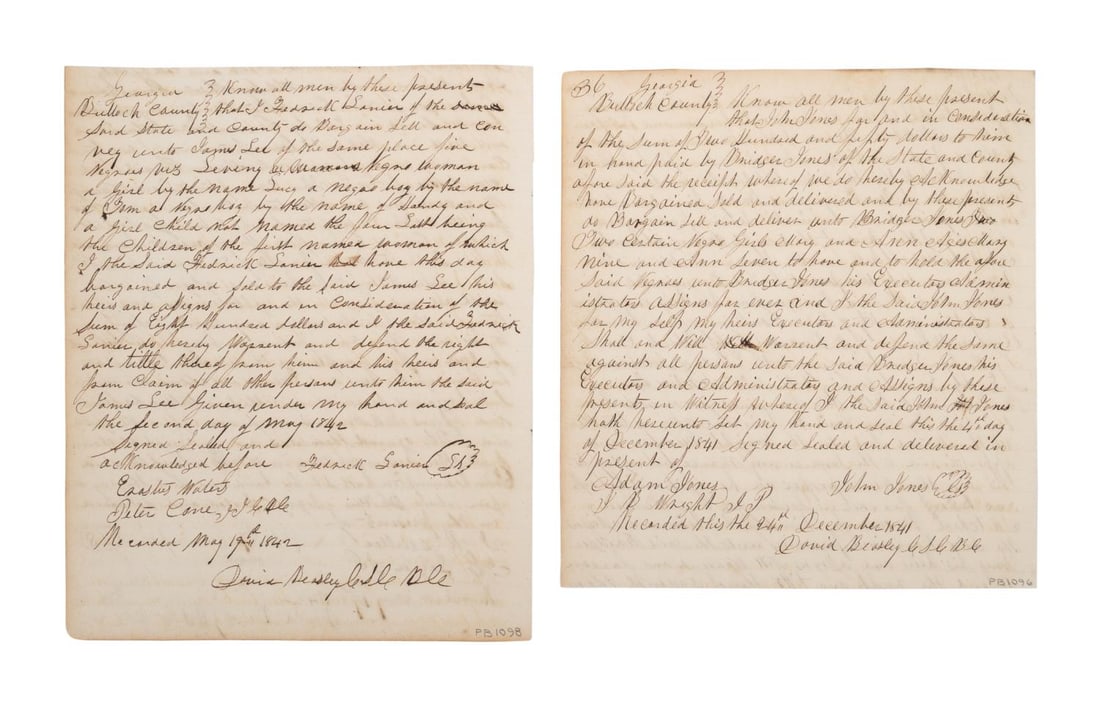 Georgia Know all men by these present
Bulloch County that I Fedrick Lanier of the
Said State and County do Bargain Sell and con
vey unto James Lee of the same place five
Negroes viz Negro woman
a Girl by the name Lucy a negro boy by the name
of Tom a Negro boy by the name of Sandy and
a Girl Child not named the four Last being
the Children of the first named woman of which
I the Said Fedrick Lanier have this day
bargained and sold to the said James Lee his
heirs and assigns for and in Consideration of the
Sum of Eight Hundred dollars and I the said Fedrick
Lanier do hereby Warrent and defend the right
and tittle thereof from him and his heirs and
from Claim of all other persons unto them the said
James Lee Given under my hand and Seal
the second day of May 1842
Signed Sealed and
acknowledged before Fedrick Lanier
Erastus Waters
Peter Cone
Recorded May 1842
David Beasley
PB1098
36 Georgia
Bulloch County Know all men by these present
that John Jones for and in Consideration
of the Sum of Two Hundred and fifty dollars to him
in hand paid by Bridger Jones of the State and County
afore said the receipt whereof we do hereby Acknowledge
have Bargained Sold and delivered and by these present
do Bargain Sell and deliver unto Bridger Jones
Two Certain Negro Girls Mary and Ann Ages Mary
Nine and Ann Seven to have and to hold the afore
Said Negroes unto Bridger Jones his Executors Admin
istrators Assigns for ever and I the Said John Jones
for my Self my heirs Executors and Administrators
Shall and Will Warrent and defend the same
against all persons unto the Said Bridger Jones his
Executors and Administrators and Assigns by these
present in Witness whereof I the said John Jones
hath hereunto Set my hand and Seal this the day
of December 1841 Signed Sealed and delivered in
present of
Adam Jones John Jones
Wright J P
Recorded this the 24th December 1841
David Beasley
PB1096